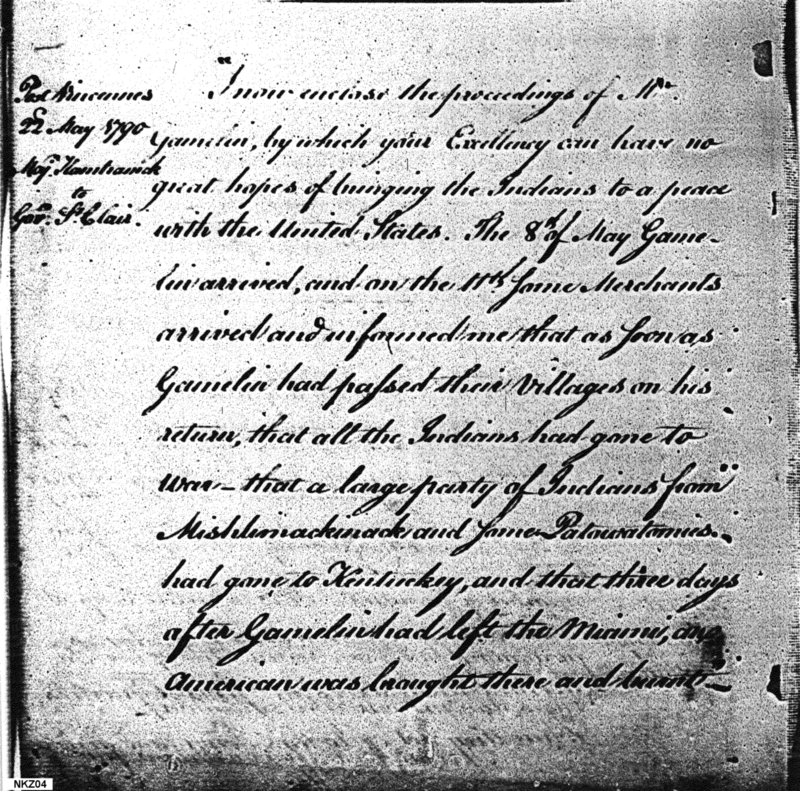 Post Vincennes
22d May 1790
Majr. Hamtramck
to
Govr. St. Clair.
"I now enclose the proceedings of Mr.
Gamelin, by which your Excellency can have no
great hopes of bringing the Indians to a peace
with the United States. The 8th of May Game-
lin arrived, and on the 11th some Merchants
arrived and informed me that as soon as
Gamelin had passed their Villages on his
return, that all the Indians had gone to
war – that a large party of Indians from
Mishlimackinack and some Patowatomies
had gone to Kentuckey, and that three days
after Gamelin had left the Miami, an
American was brought there and burnt" –
NKZ04